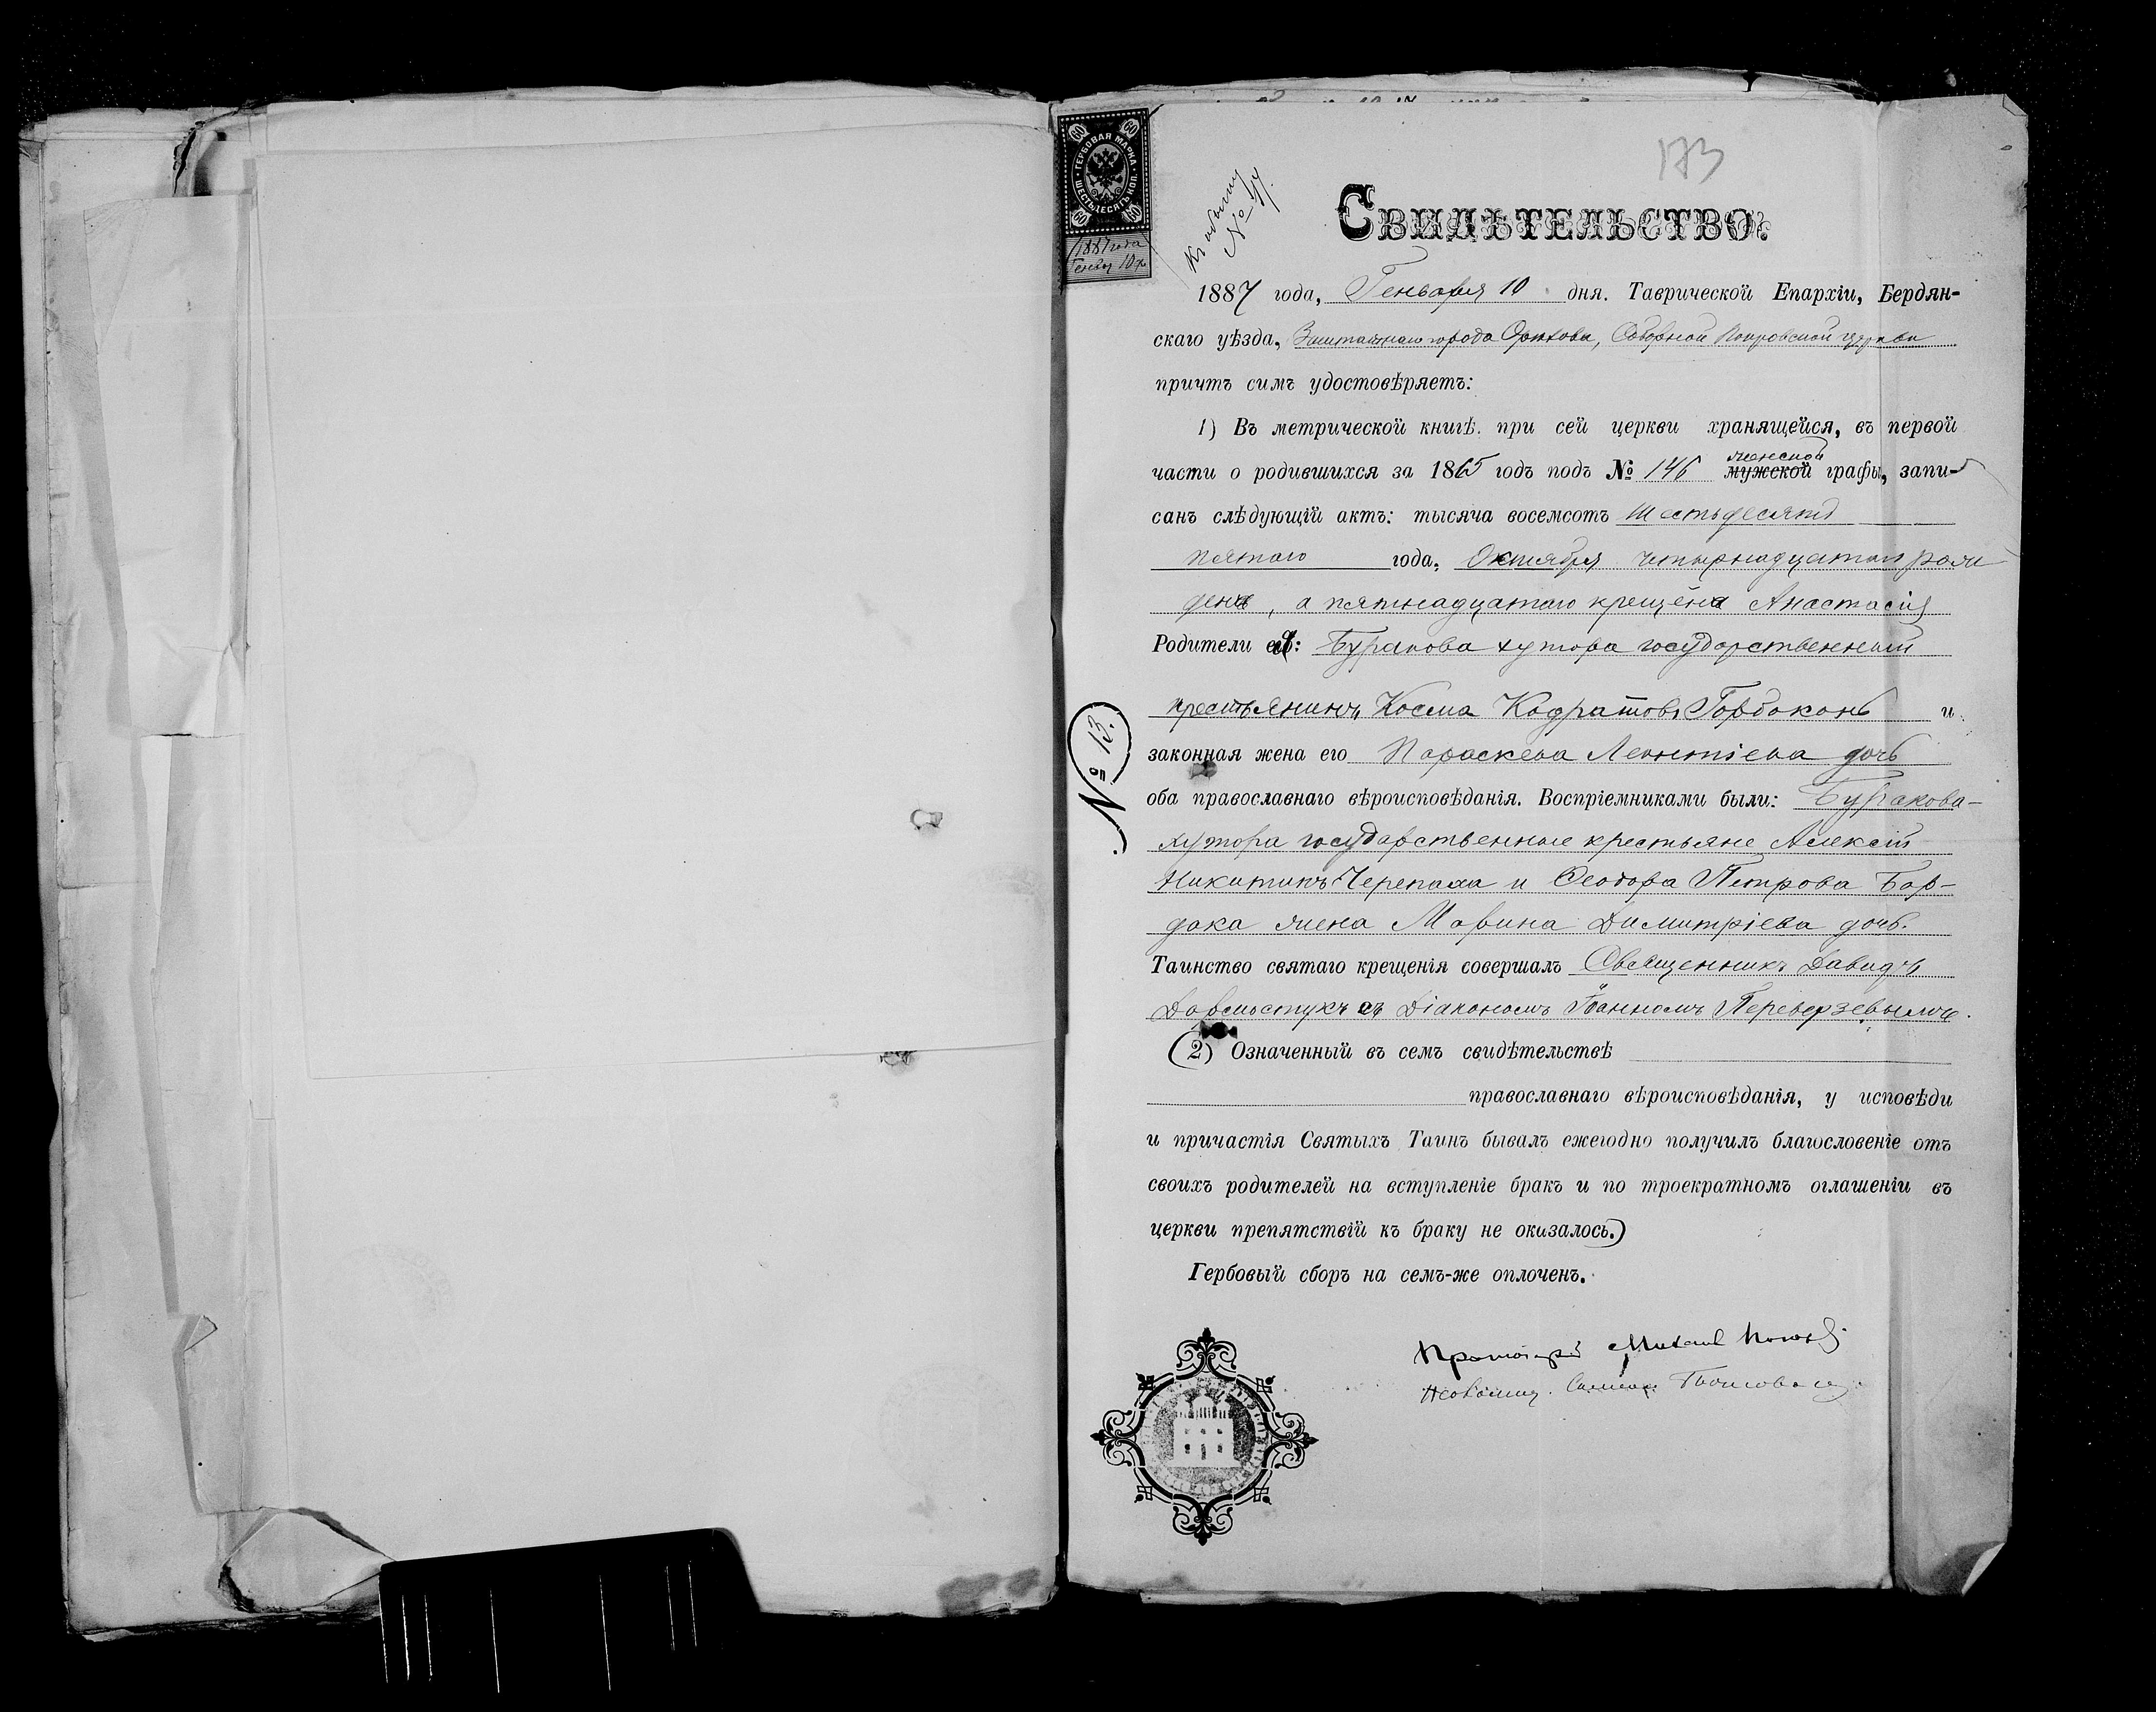 173
ГЕРБОВАЯ МАРКА
ШЕСТЬДЕСЯТЪ КОП.
60 60
60 60
1887 года
Генвр 10 дн
Къ обыску
№
СВИДѢТЕЛЬСТВО.
1887 года, Генваря 10 дня. Таврической Епархіи, Бердян-
скаго уѣзда, Заштатнаго города Орѣхова, Соборной Покровской церкви
причтъ симъ удостовѣряетъ:
1) Въ метрической книгѣ при сей церкви хранящейся, въ первой
женской
части о родившихся за 1865 годъ подъ № 146 мужской графы, запи-
санъ слѣдующій актъ: тысяча восемсотъ шестьдесятъ
пятаго года, Октября четырнадцатаго рож
дена, а пятнадцатаго крещена Анастасія
Родители ея: Буракова хутора государственный
крестьянинъ Косма Кодратовъ Горбоконь и
№ 13.
законная жена его Параскева Леонтіева дочь
оба православнаго вѣроисповѣданія. Воспріемниками были: Буракова-
хутора государственные крестьяне Алексій
Никитинъ Черепаха и Ѳеодора Петрова Бар-
дака жена Марина Димитріева дочь.
Таинство святаго крещенія совершалъ Священникъ Давидъ
съ Діакономъ Іоанномъ Переверзевымъ.
(2) Означенный въ семъ свидѣтельствѣ
православнаго вѣроисповѣданія, у исповѣди
и причастія Святыхъ Таинъ бывалъ ежегодно получилъ благословеніе отъ
своихъ родителей на вступленіе бракъ и по троекратномъ оглашеніи въ
церкви препятствій къ браку не оказалось.)
Гербовый сборъ на семъ-же оплоченъ.
Протоіерей Михаил